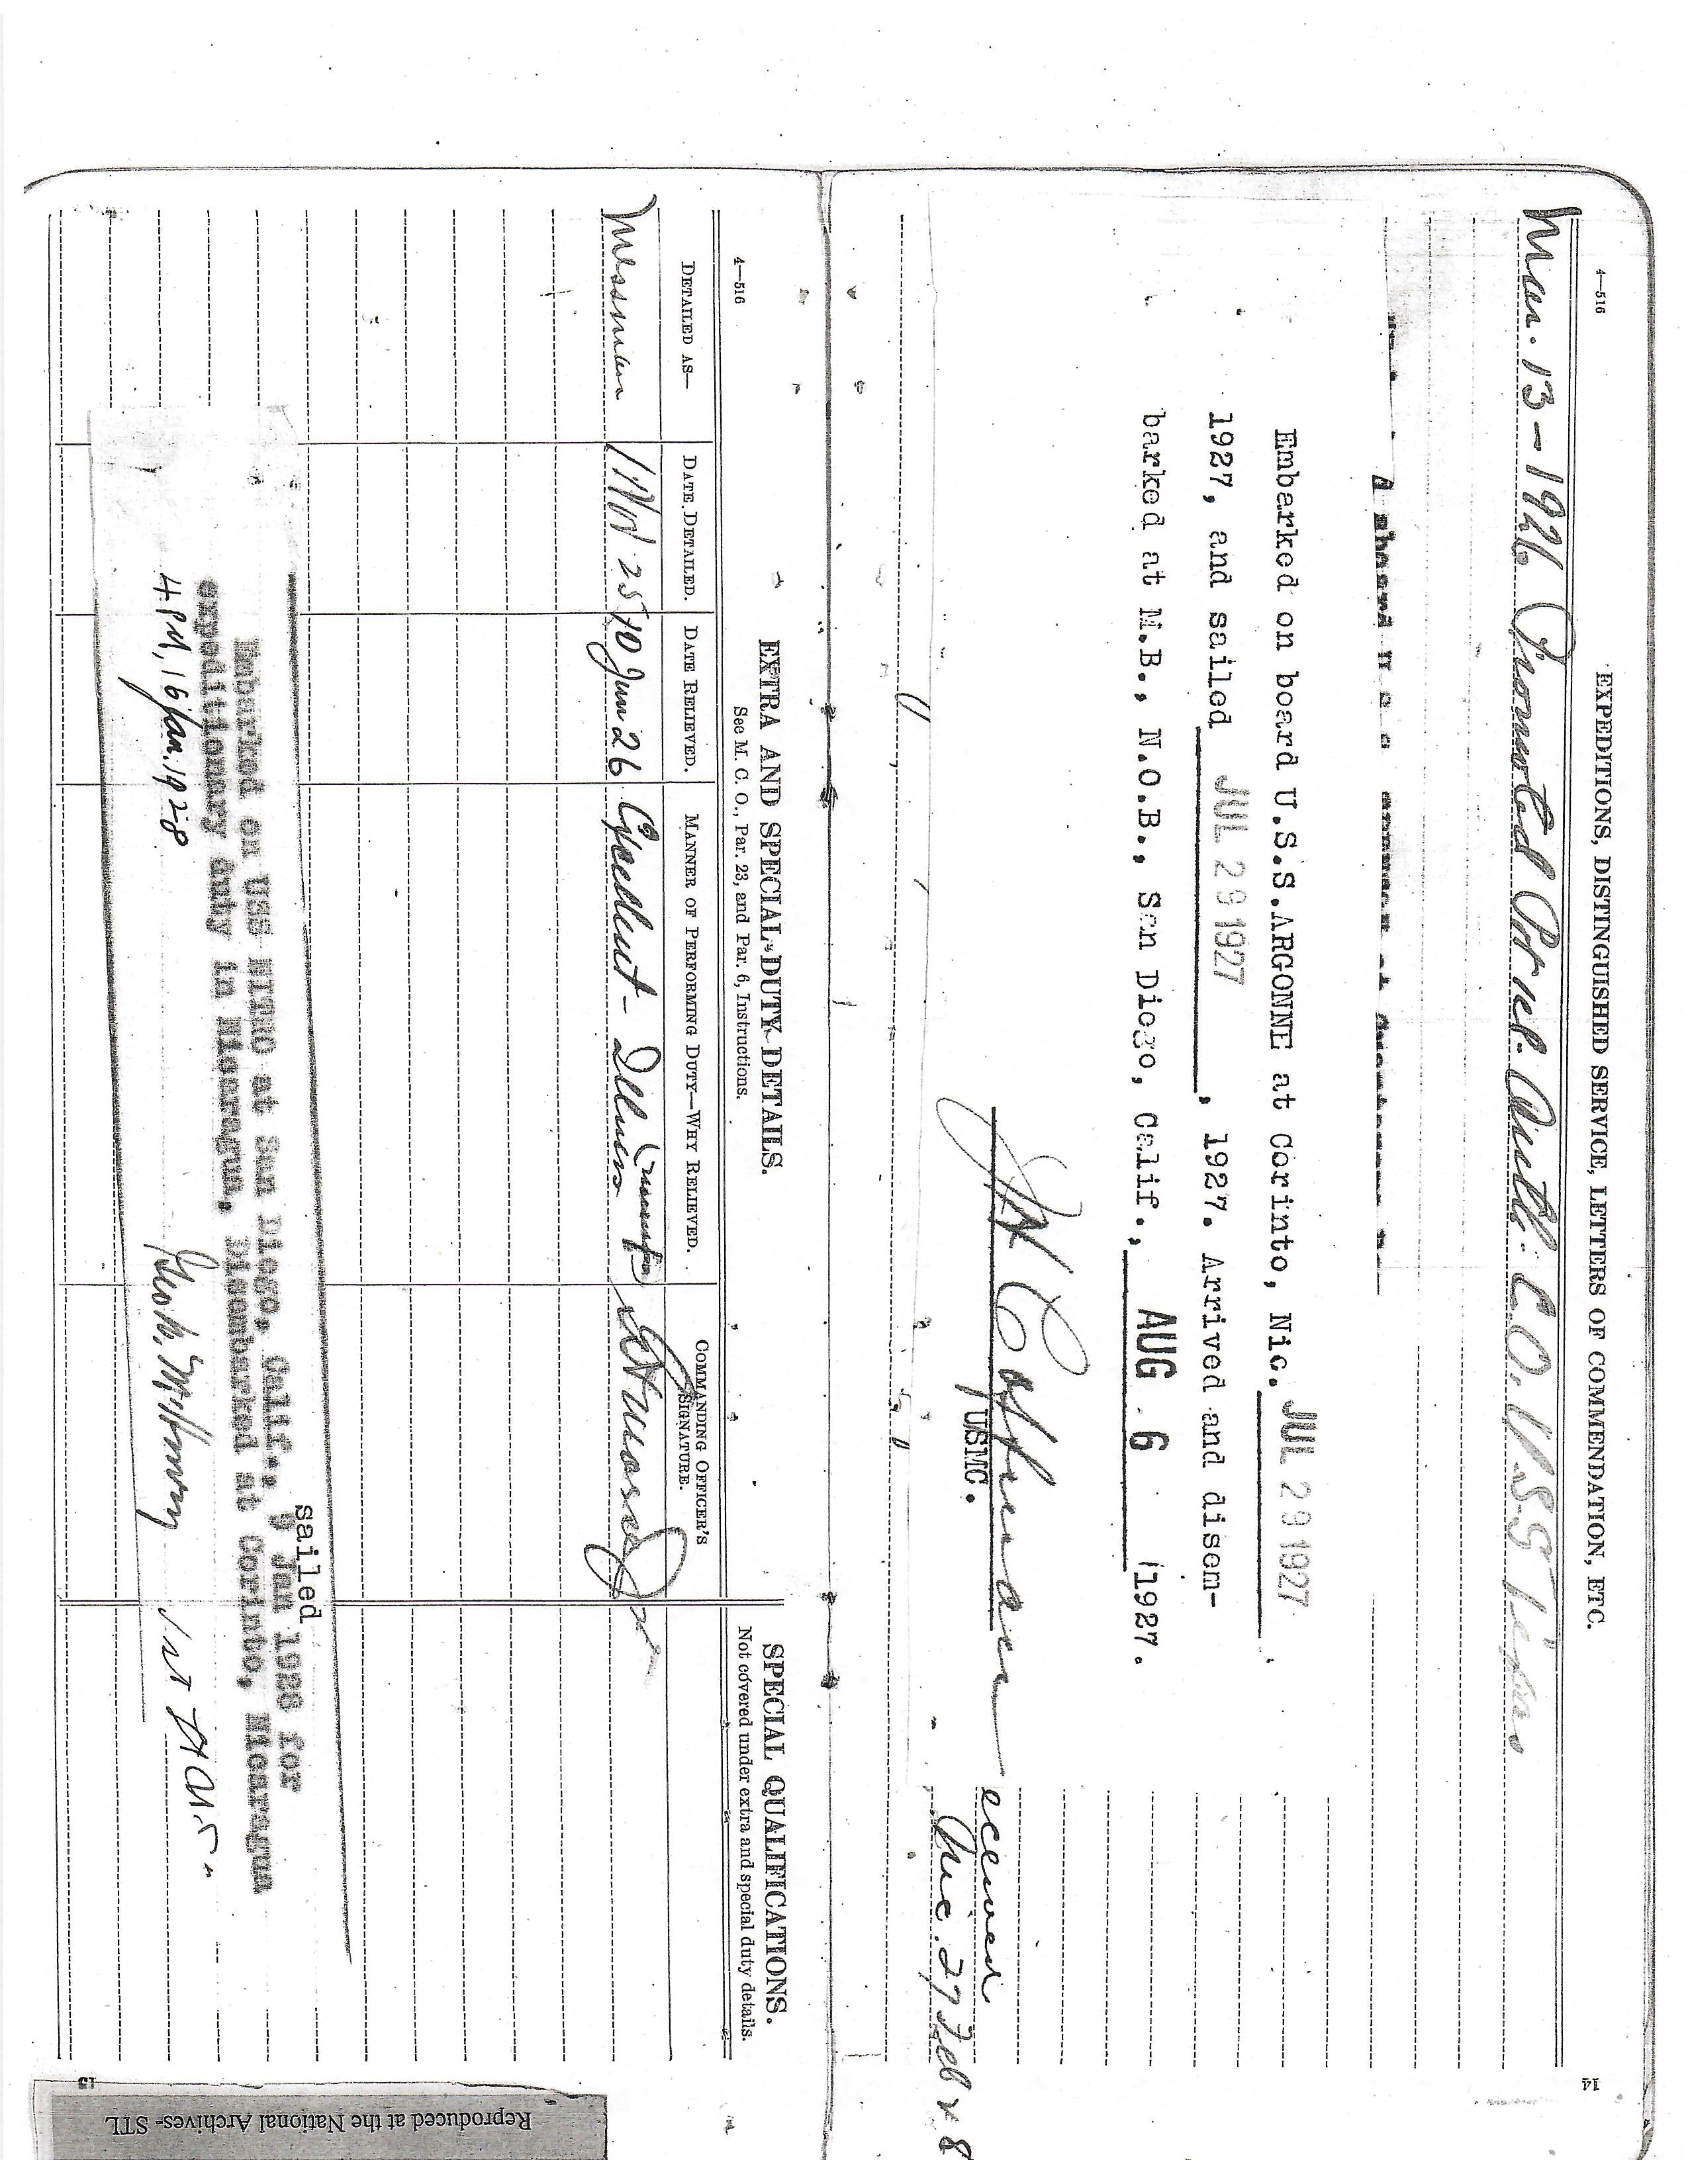 4—516
EXPEDITIONS, DISTINGUISHED SERVICE, LETTERS OF COMMENDATION, ETC.
14
Mar. 13 - 1926 Promoted Pvt 1cl. Auth: C.O. U.S.S Texas
Embarked on board U.S.S.ARGONNE at Corinto, Nic. JUL 29 1927
1927, and sailed JUL 29 1927, 1927. Arrived and disem-
barked at M.B., N.O.B., San Diego, Calif., AUG 6 1927.
USMC.
Nic. 27 Feb 28
4—516
EXTRA AND SPECIAL DUTY DETAILS.
See M. C. O., Par. 23, and Par. 6, Instructions.
SPECIAL QUALIFICATIONS.
Not covered under extra and special duty details.
DETAILED AS—
DATE DETAILED.
DATE RELIEVED.
MANNER OF PERFORMING DUTY—WHY RELIEVED.
COMMANDING OFFICER'S SIGNATURE.
Messman 1 Nov 25 10 Jun 26 Excellent - Illness
sailed
Embarked on USS NITRO at San Diego, Calif., 9 Jan 1928 for
expeditionary duty in Nicaragua, Disembarked at Corinto, Nicaragua
4 PM, 16 Jan. 1928
15
Reproduced at the National Archives- STL